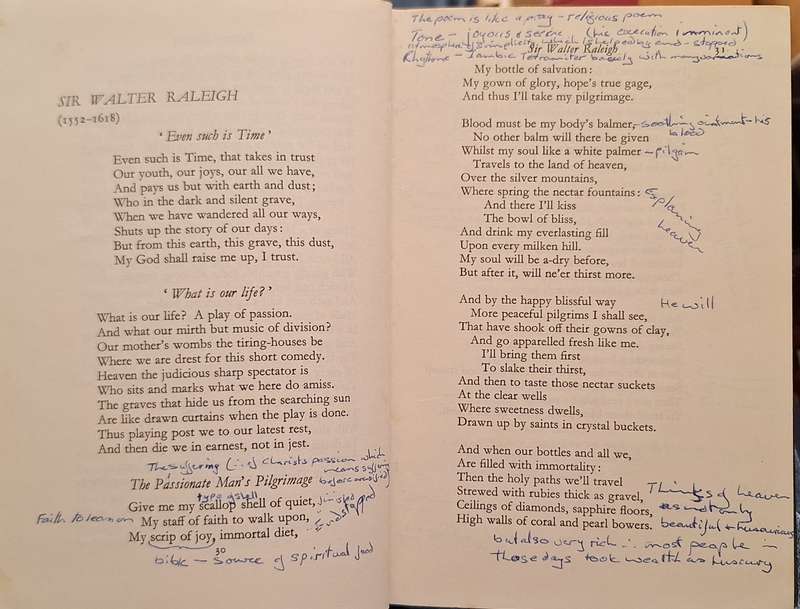 SIR WALTER RALEIGH
(1552–1618)
‘Even such is Time’
Even such is Time, that takes in trust
Our youth, our joys, our all we have,
And pays us but with earth and dust;
Who in the dark and silent grave,
When we have wandered all our ways,
Shuts up the story of our days:
But from this earth, this grave, this dust,
My God shall raise me up, I trust.
‘What is our life?’
What is our life? A play of passion.
And what our mirth but music of division?
Our mother's wombs the tiring-houses be
Where we are drest for this short comedy.
Heaven the judicious sharp spectator is
Who sits and marks what we here do amiss.
The graves that hide us from the searching sun
Are like drawn curtains when the play is done.
Thus playing post we to our latest rest,
And then die we in earnest, not in jest.
The suffering (∴ of Christs passion which
means suffing
The Passionate Man's Pilgrimage
type of shell
Give me my scallop shell of quiet,
Faith to lean on My staff of faith to walk upon, End stopped
My scrip of joy, immortal diet,
30
bible – source of spiritual food
The poem is like a pray – religious poem
Tone – joyous & serene (his execution imminent)
atmosphere of simplicity which is helped by end-stopped
Sir Walter Raleigh 31
Rhythm – Iambic Tetrameter basicly with many variations
My bottle of salvation:
My gown of glory, hope's true gage,
And thus I'll take my pilgrimage.
Blood must be my body's balmer, – soothing ointment – his
blood
No other balm will there be given
Whilst my soul like a white palmer – pilgrim
Travels to the land of heaven,
Over the silver mountains,
Where spring the nectar fountains: Explaining
heaven
And there I'll kiss
The bowl of bliss,
And drink my everlasting fill
Upon every milken hill.
My soul will be a-dry before,
But after it, will ne'er thirst more.
And by the happy blissful way He will
More peaceful pilgrims I shall see,
That have shook off their gowns of clay,
And go apparelled fresh like me.
I'll bring them first
To slake their thirst,
And then to taste those nectar suckets
At the clear wells
Where sweetness dwells,
Drawn up by saints in crystal buckets.
And when our bottles and all we,
Are filled with immortality:
Then the holy paths we'll travel
Strewed with rubies thick as gravel, Thinks of heaven
Ceilings of diamonds, sapphire floors, as not only
High walls of coral and pearl bowers. beautiful & luxurious
but also very rich ∴ most people in
those days took wealth as luxury